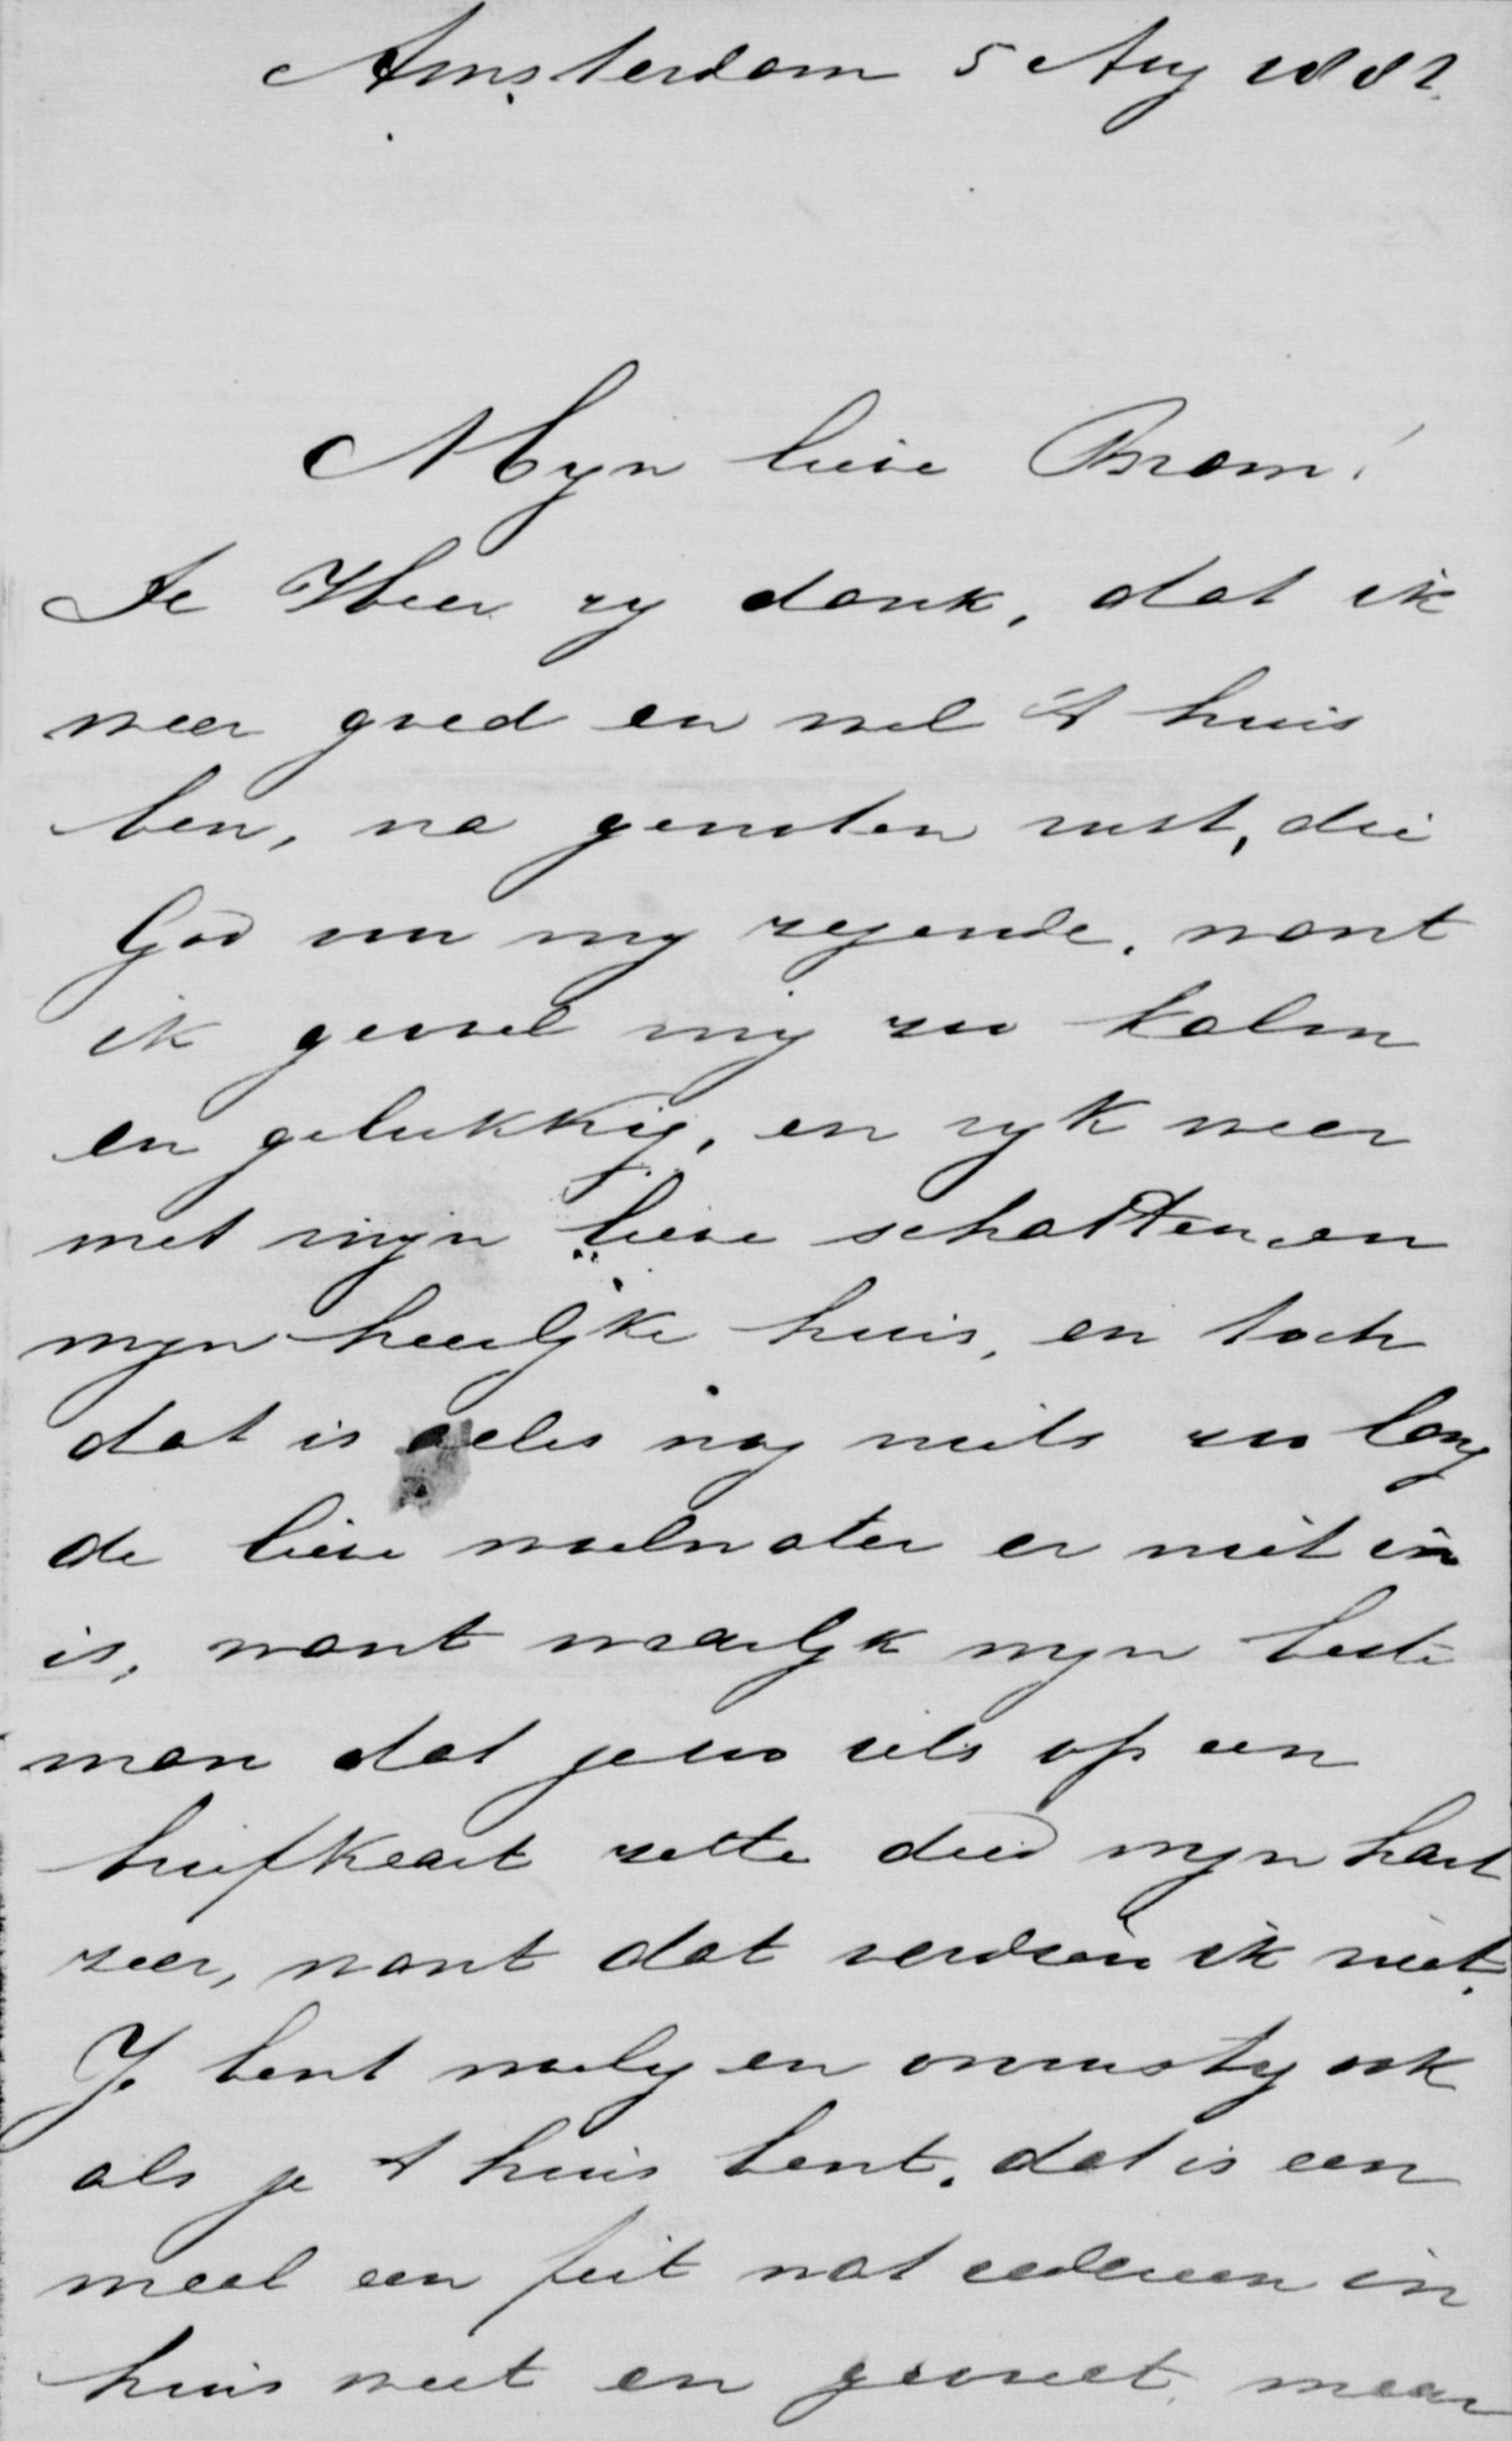 Amsterdam 5 Aug 1882.
Myn lieve Bram!
De Heer zy dank, dat ik
weer goed en wel 't huis
ben, na genoten rust, die
God om my zegende, want
ik gevoel mij zoo kalm
en gelukkig, en ryk weer
met mijn lieve schatten en
myn heerlyke huis, en toch
dat is alles nog niets zoo lang
de lieve makker er niet in
is, want waarlyk myn beste
man dat je zoo iets op een
briefkaart zette deed myn hart
zeer, want dat verdien ik niet.
Je bent woelig en onrustig ook
als je 't huis bent, dat is een
maal een feit wat iedereen in
huis weet en gevoelt, maar